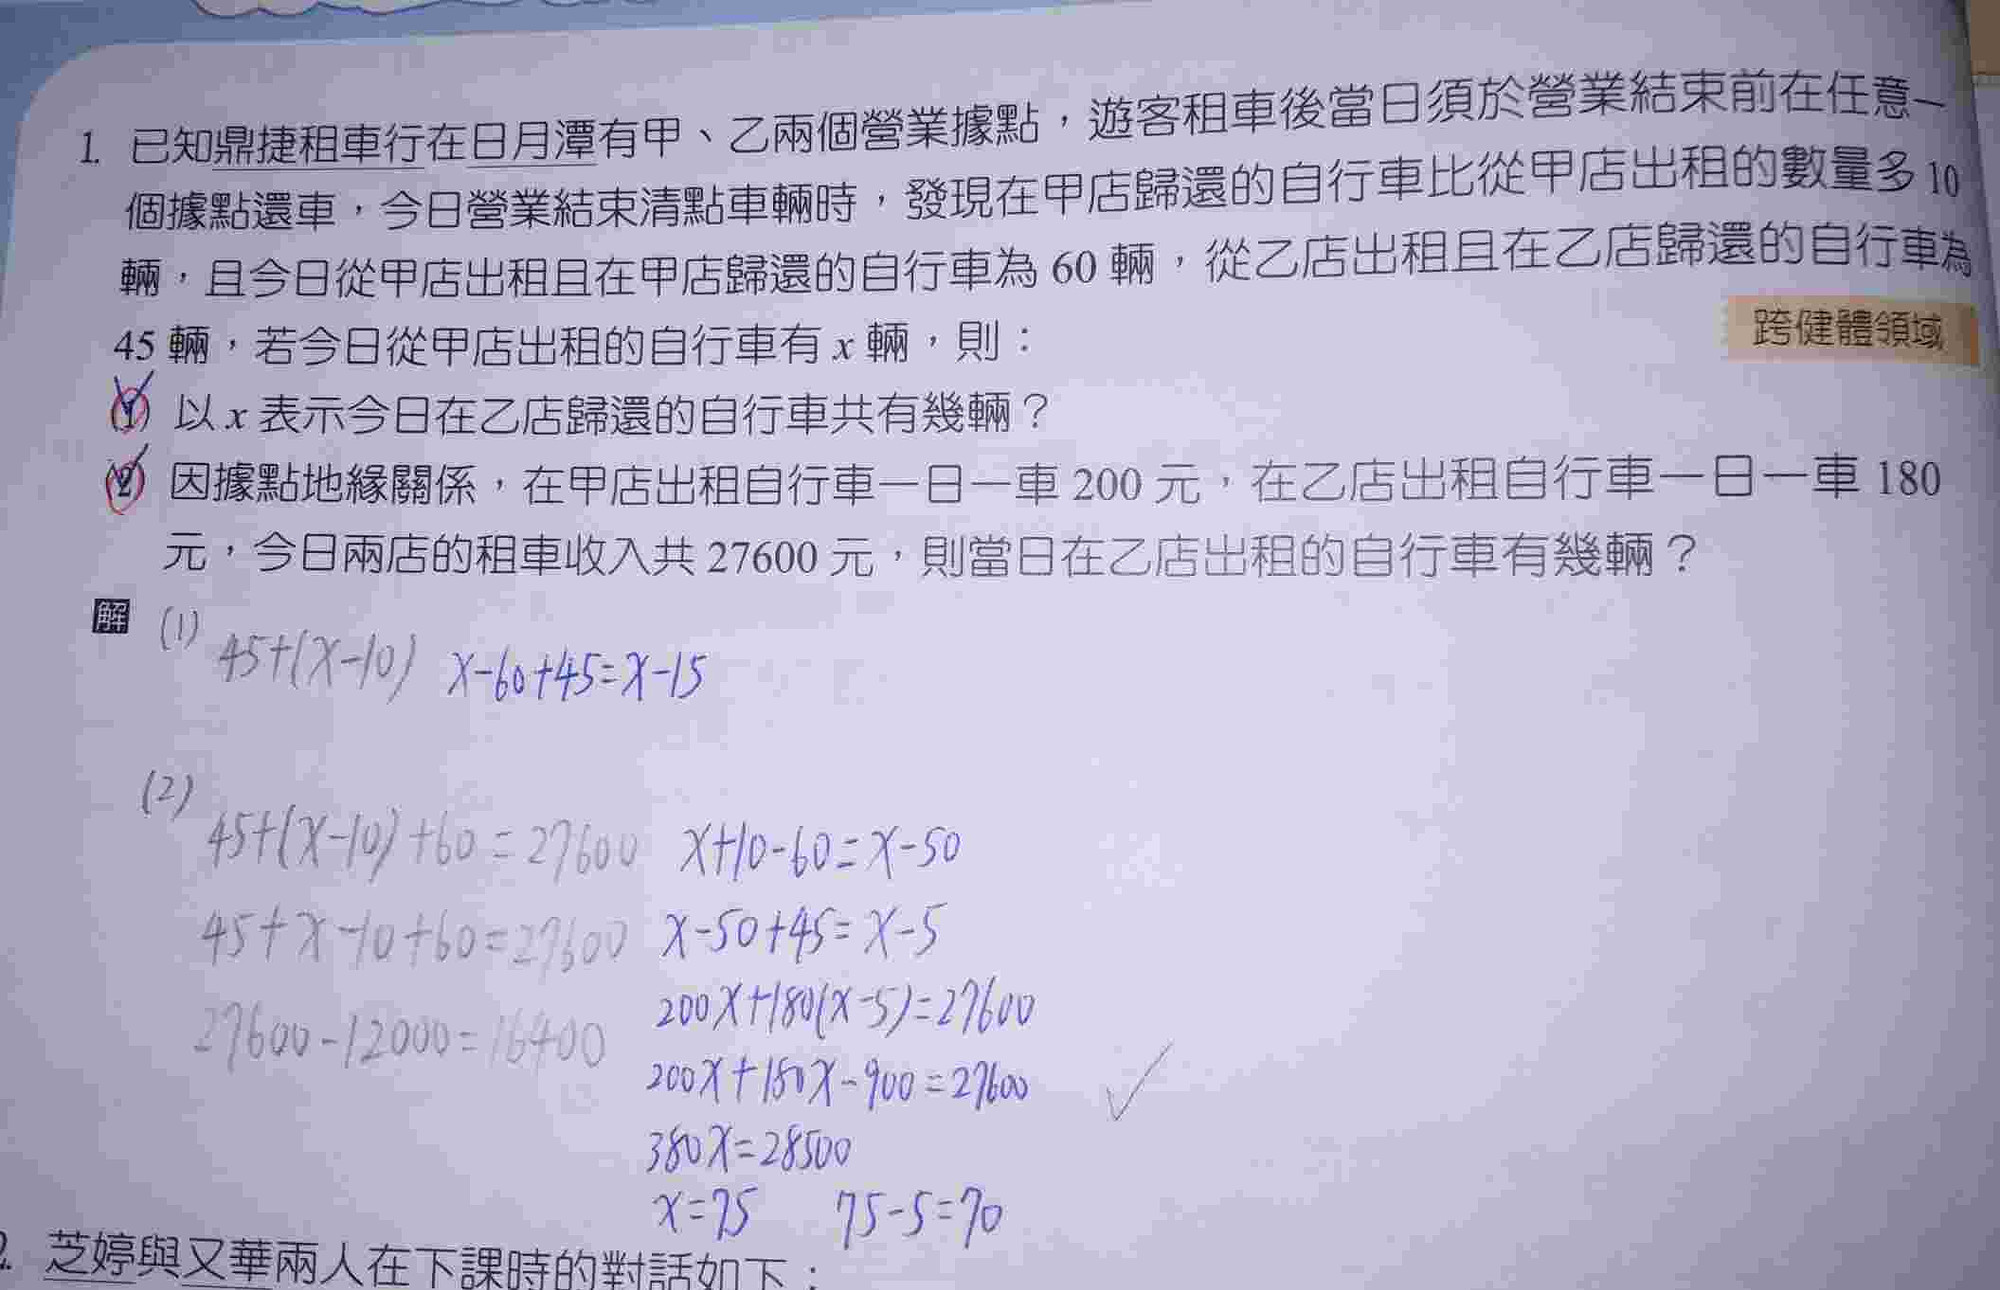 1. 已知鼎捷租車行在日月潭有甲、乙兩個營業據點，遊客租車後當日須於營業結束前在任意一
個據點還車，今日營業結束清點車輛時，發現在甲店歸還的自行車比從甲店出租的數量多10
輛，且今日從甲店出租且在甲店歸還的自行車為60輛，從乙店出租且在乙店歸還的自行車為
45輛，若今日從甲店出租的自行車有x輛，則：
跨健體領域
(1) 以x表示今日在乙店歸還的自行車共有幾輛？
(2) 因據點地緣關係，在甲店出租自行車一日一車200元，在乙店出租自行車一日一車180
元，今日兩店的租車收入共27600元，則當日在乙店出租的自行車有幾輛？
解 (1)
45+(x-10) x-60+45=x-15
(2)
45+(x-10)+60=27600 x+10-60=x-50
45+x-10+60=27600 x-50+45=x-5
200x+180(x-5)=27600
27600-12000=16400
200x+180x-900=27600
380x=28500
x=75 75-5=70
2. 芝婷與又華兩人在下課時的對話如下：